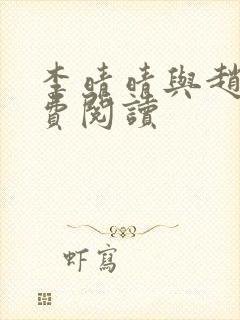 李晴晴與趙
費閱讀
虾寫